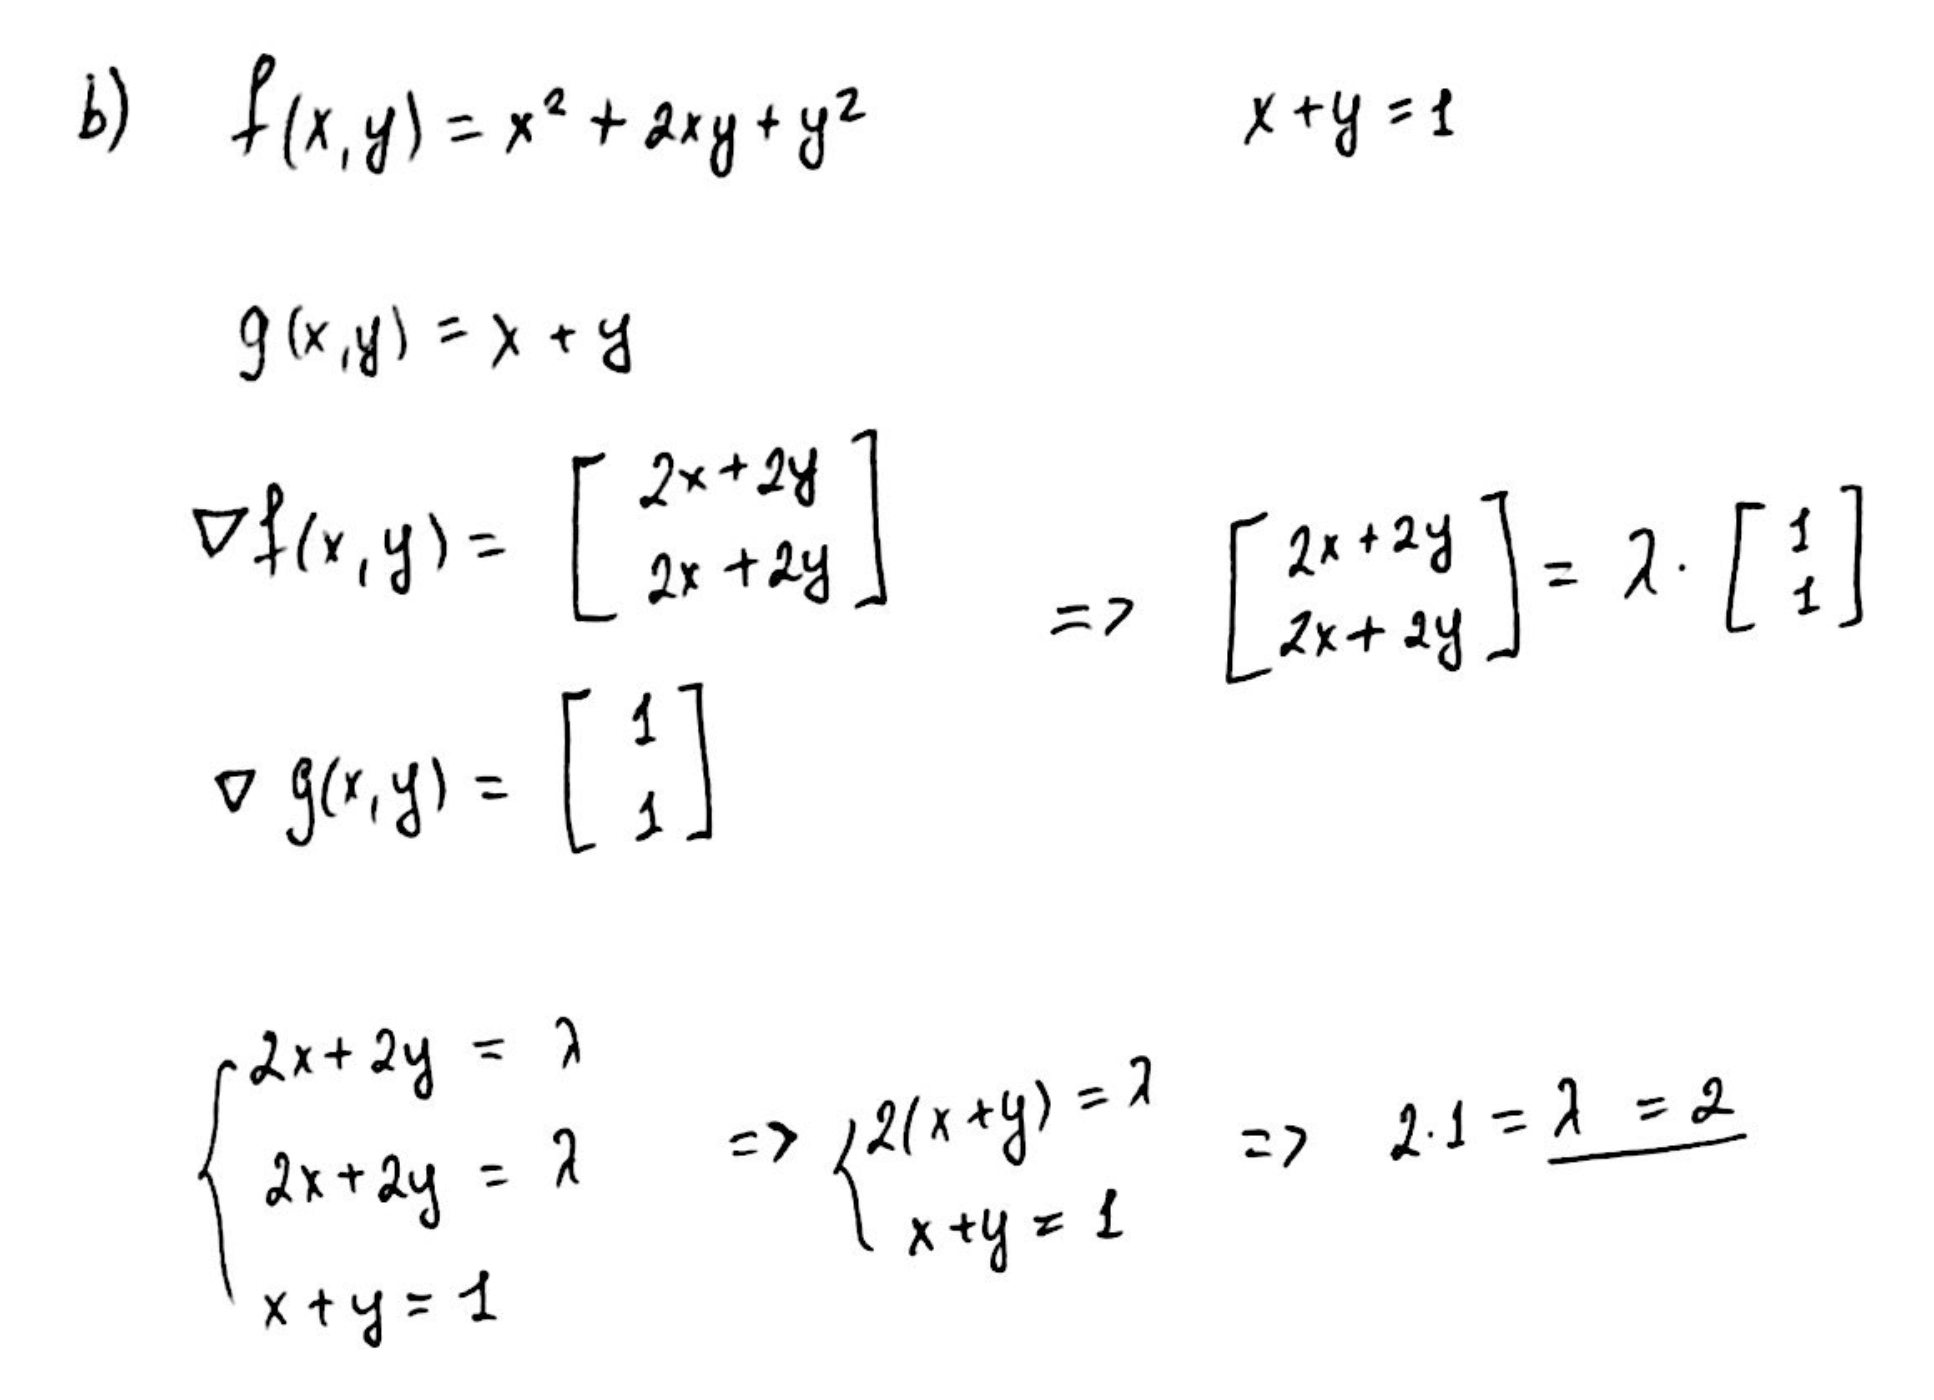 b) f(x,y) = x² + 2xy + y² x + y = 1
g(x,y) = x + y
∇f(x,y) = [ 2x + 2y
2x + 2y ]
=> [ 2x + 2y
2x + 2y ] = λ · [ 1
1 ]
∇g(x,y) = [ 1
1 ]
{ 2x + 2y = λ
2x + 2y = λ
x + y = 1
=> { 2(x + y) = λ
x + y = 1
=> 2·1 = λ = 2